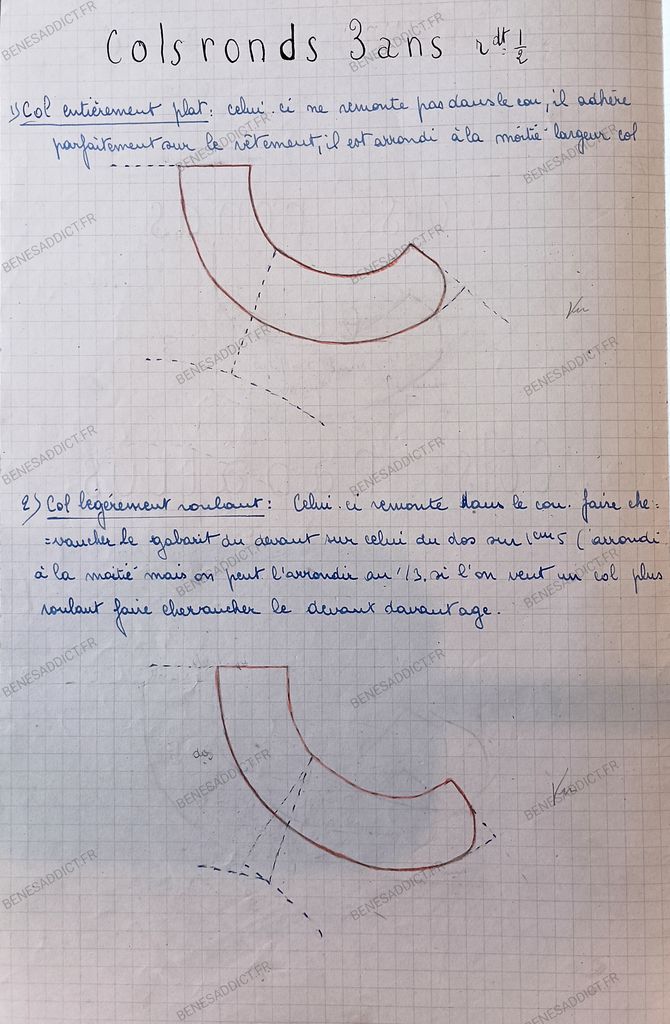 Cols ronds 3 ans rdt 1/2
1) Col entièrement plat: celui.ci ne remonte pas dans le cou, il adhère
parfaitement sur le vêtement, il est arrondi à la moitié largeur col
Vu
2) Col légèrement roulant: Celui.ci remonte dans le cou. faire che=
=vaucher le gabarit du devant sur celui du dos sur 1cm5 (arrondi
à la moitié mais on peut l'arrondir au 1/3. si l'on veut un col plus
roulant faire chevaucher le devant davantage.
dos
Vu
BENESADDICT.FR